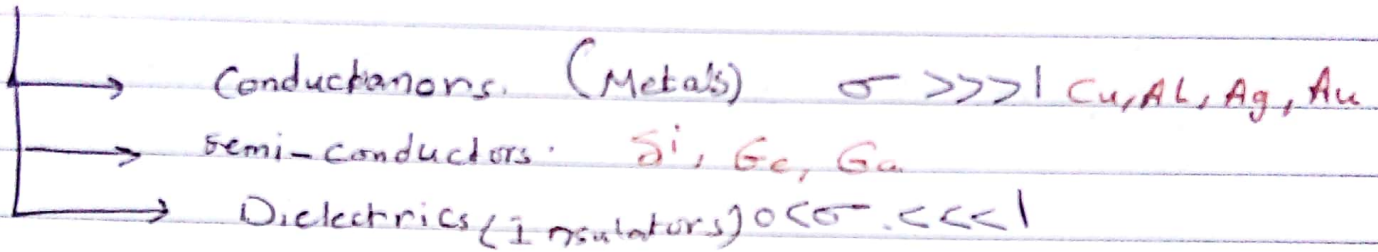 Conductanors. (Metals) σ >>>1 Cu, Al, Ag, Au
Semi-conductors. Si, Ge, Ga
Dielectrics (Insulators) 0<σ.<<<1